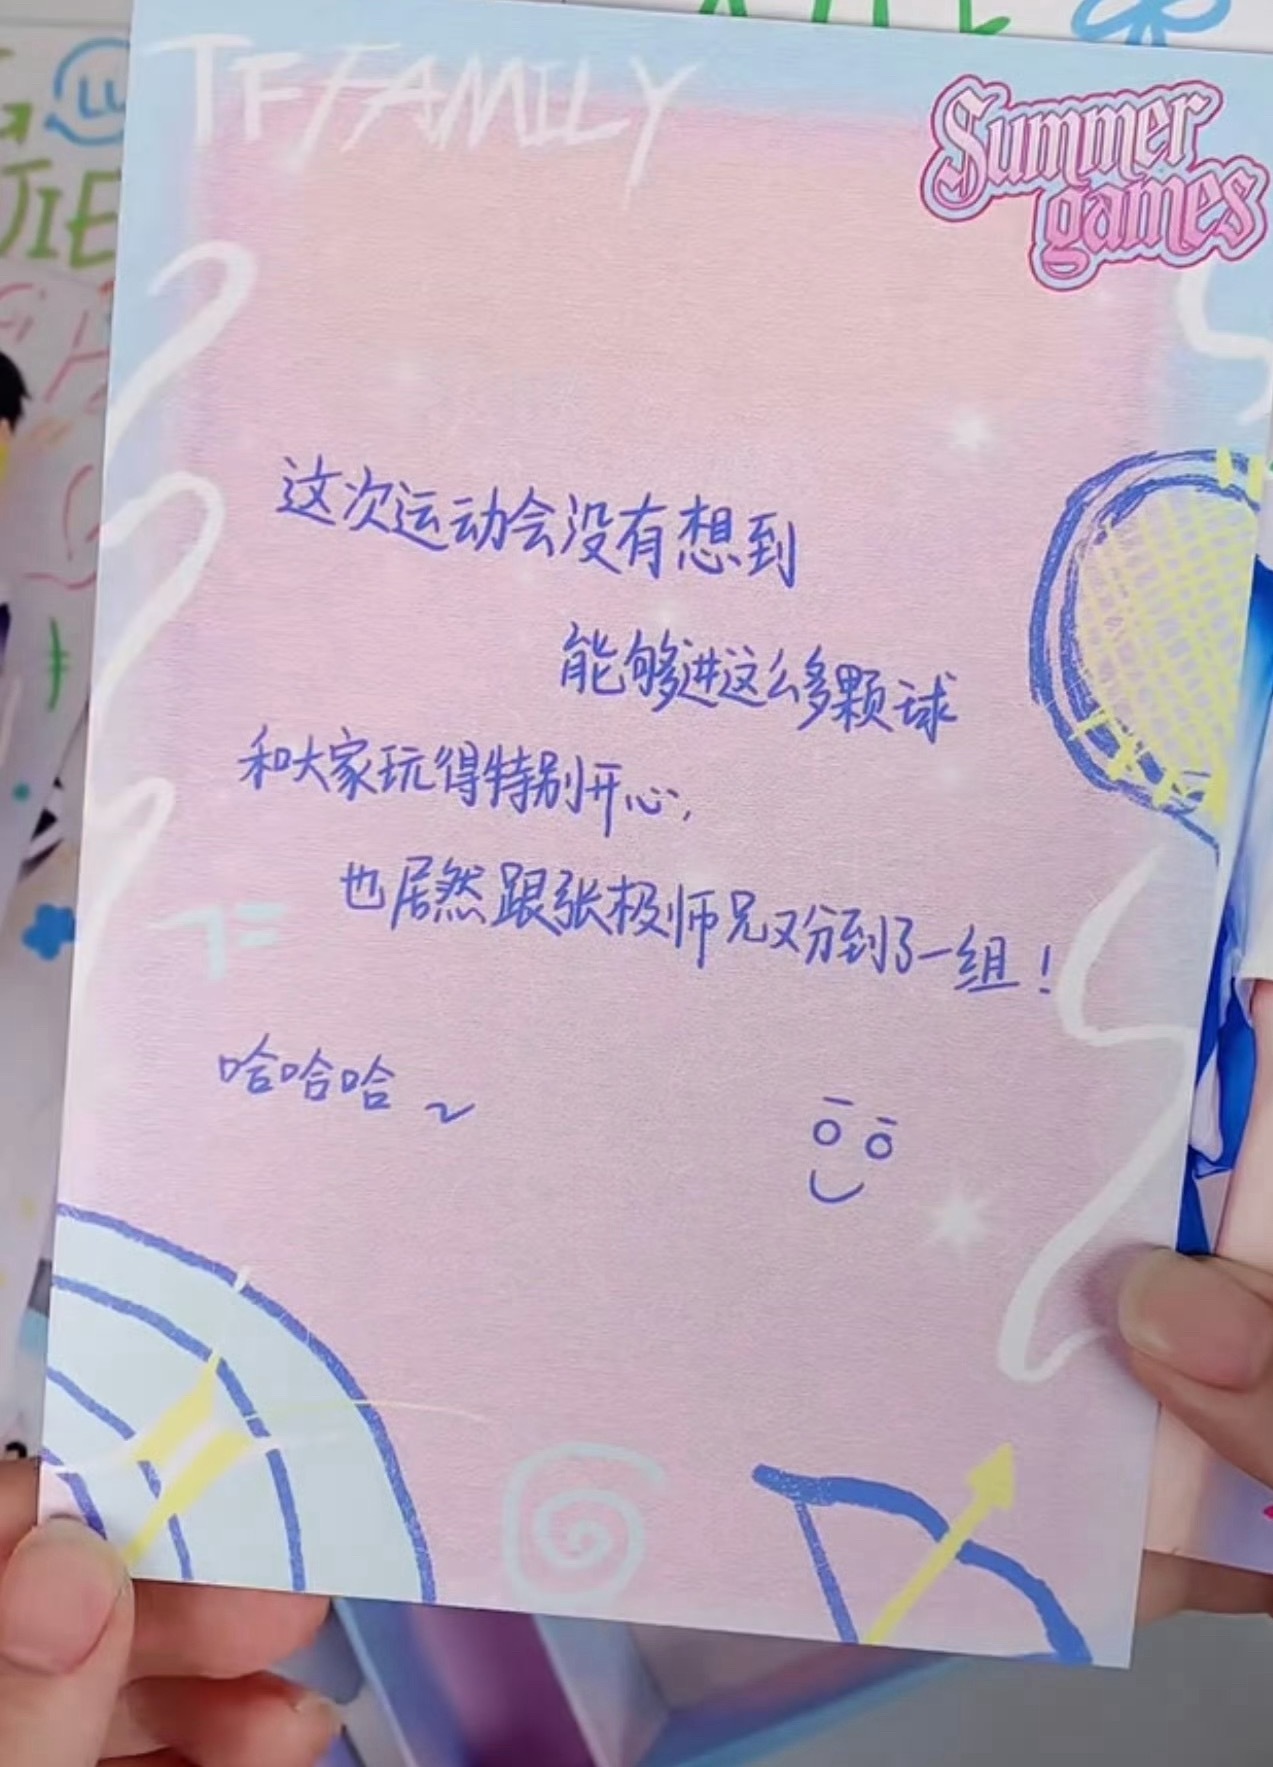 TF FAMILY
Summer
games
LU
JIE
这次运动会没有想到
能够进这么多颗球
和大家玩得特别开心,
也居然跟张极师兄又分到了一组!
哈哈哈~